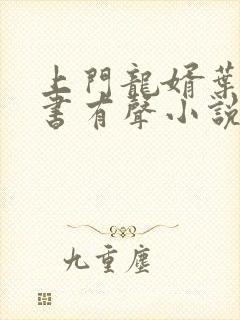 上門龍婿葉
書有聲小說
九重塵